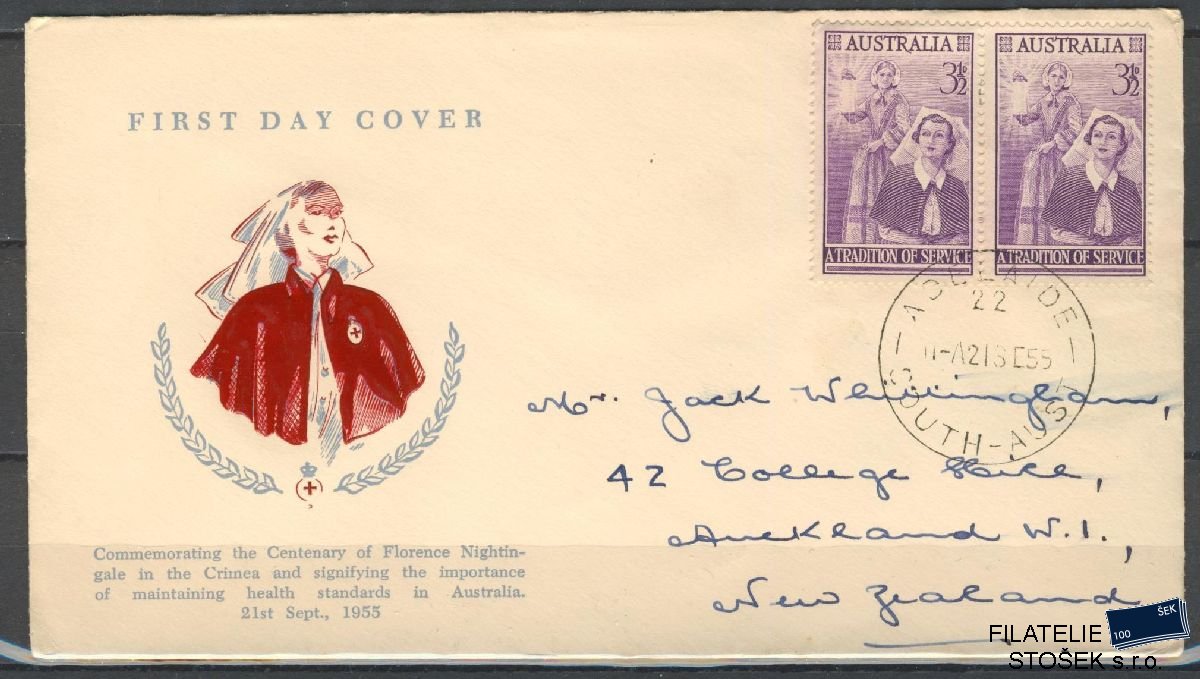 FIRST DAY COVER
AUSTRALIA
3½D
A TRADITION OF SERVICE
AUSTRALIA
3½D
A TRADITION OF SERVICE
ADELAIDE
22
11-A21SE55
SOUTH-AUST
Mr. Jack Whittingham,
42 College Hill,
Auckland W.1.,
New Zealand
Commemorating the Centenary of Florence Nightin-
gale in the Crimea and signifying the importance
of maintaining health standards in Australia.
21st Sept., 1955
FILATELIE
STOŠEK s.r.o.
100
ŠEK